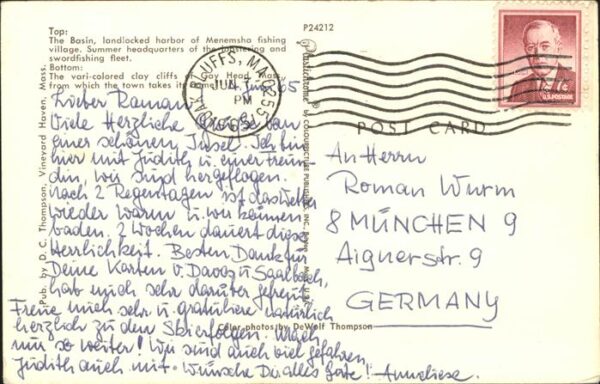 Top:
The Basin, landlocked harbor of Menemsha fishing
village. Summer headquarters of the lobstering and
swordfishing fleet.
Bottom:
The vari-colored clay cliffs of Gay Head, Mass.,
from which the town takes its name.
P24212
BLUFFS, MA 02557
JUN 7
PM
1965
7¢
U.S. POSTAGE
POST CARD
Pub. by D. C. Thompson, Vineyard Haven, Mass.
Juni 65
Lieber Roman
Viele Herzliche Grüsse von
einer schönen Insel. Ich bin
hier mit Judith u. einer Freun
din, wir sind hergeflogen.
Nach 2 Regentagen ist das Wetter
wieder warm u. wir können
baden. 2 Wochen dauert diese
Herrlichkeit. Besten Dank für
Deine Karten v. Davos u. Saalbach,
hab mich sehr darüber gefreut.
Freue mich sehr u. gratuliere natürlich
herzlich zu den Skierfolgen. Mach
nur so weiter! Wir sind auch viel gefahren,
Judith auch mit. Wünsche Dir alles Gute! Anneliese.
An Herrn
Roman Wurm
8 MÜNCHEN 9
Aignerstr. 9
GERMANY
Color photos by DeWolf Thompson